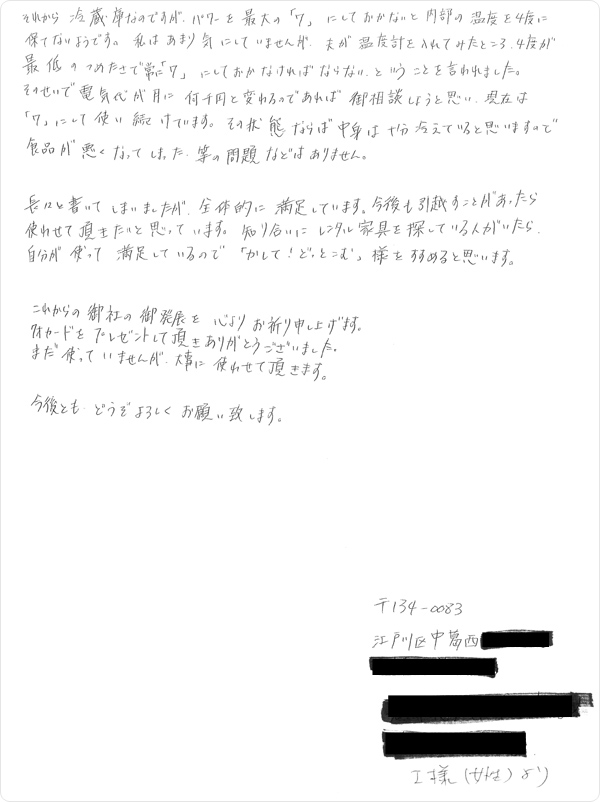 それから冷蔵庫なのですが、パワーを最大の「7」にしておかないと内部の温度を4度に
保てないようです。私はあまり気にしていませんが、夫が温度計を入れてみたところ、4度が
最低のつめたさで常に「7」にしておかなければならない、ということを言われました。
そのせいで電気代が月に何千円と変わるのであれば御相談しようと思い、現在は
「7」にして使い続けています。その状態ならば中身は十分冷えていると思いますので
食品が悪くなってしまった、等の問題などはありません。
長々と書いてしまいましたが、全体的に満足しています。今後も引越すことがあったら
使わせて頂きたいと思っています。知り合いにレンタル家具を探している人がいたら、
自分が使って満足しているので「かして!どっとこむ」様をすすめると思います。
これからの御社の御発展を心よりお祈り申し上げます。
クオカードをプレゼントして頂きありがとうございました。
まだ使っていませんが、大事に使わせて頂きます。
今後とも、どうぞよろしくお願い致します。
〒134-0083
江戸川区中葛西
I様(女性)より